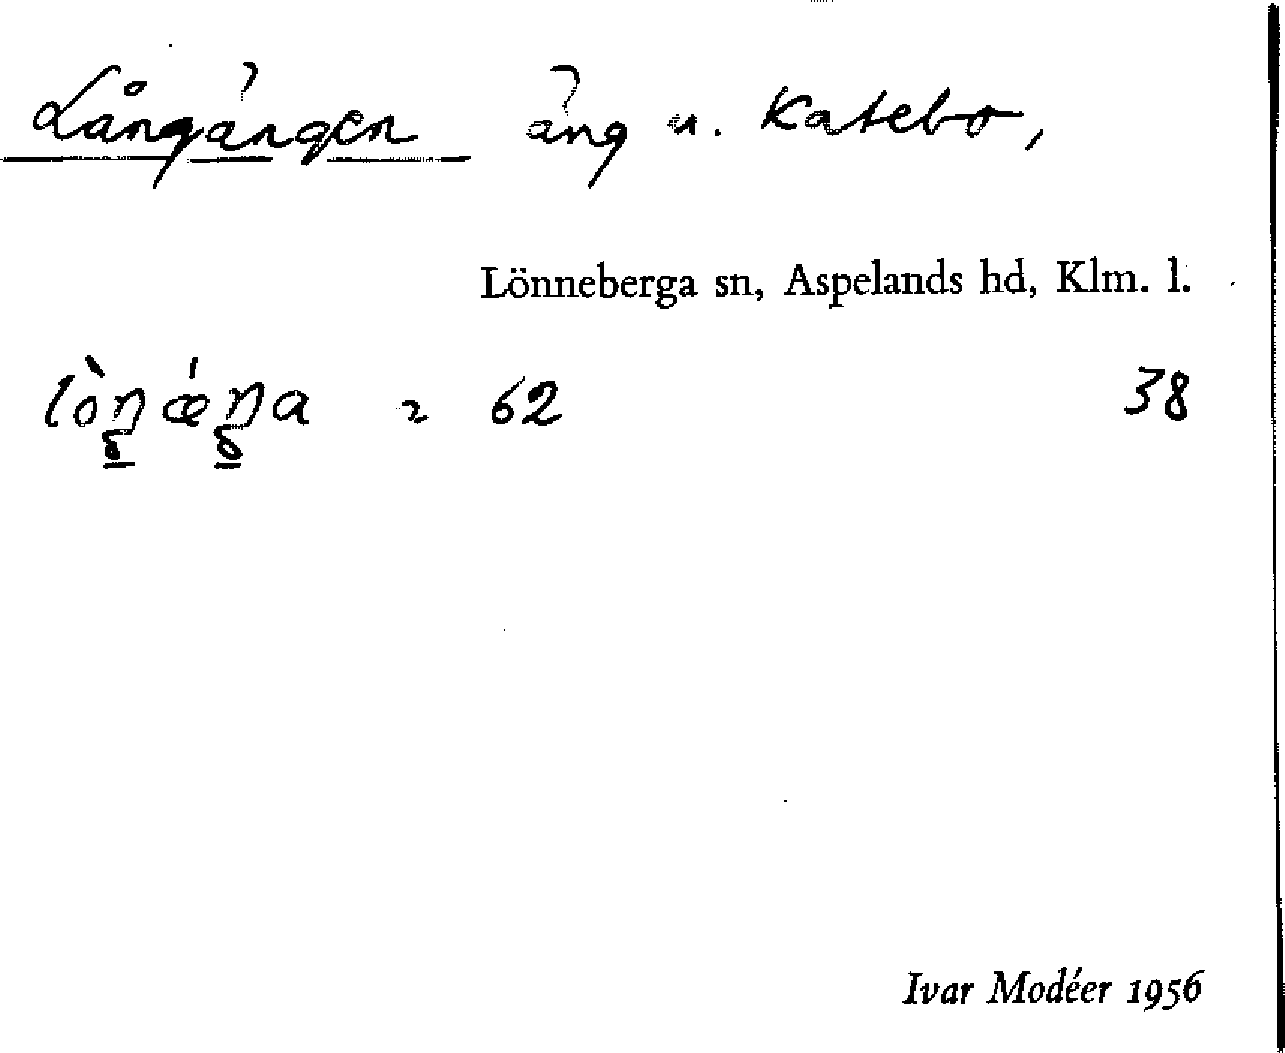 Långängen äng u. Katebo,
Lönneberga sn, Aspelands hd, Klm. l.
62 38
Ivar Modéer 1956